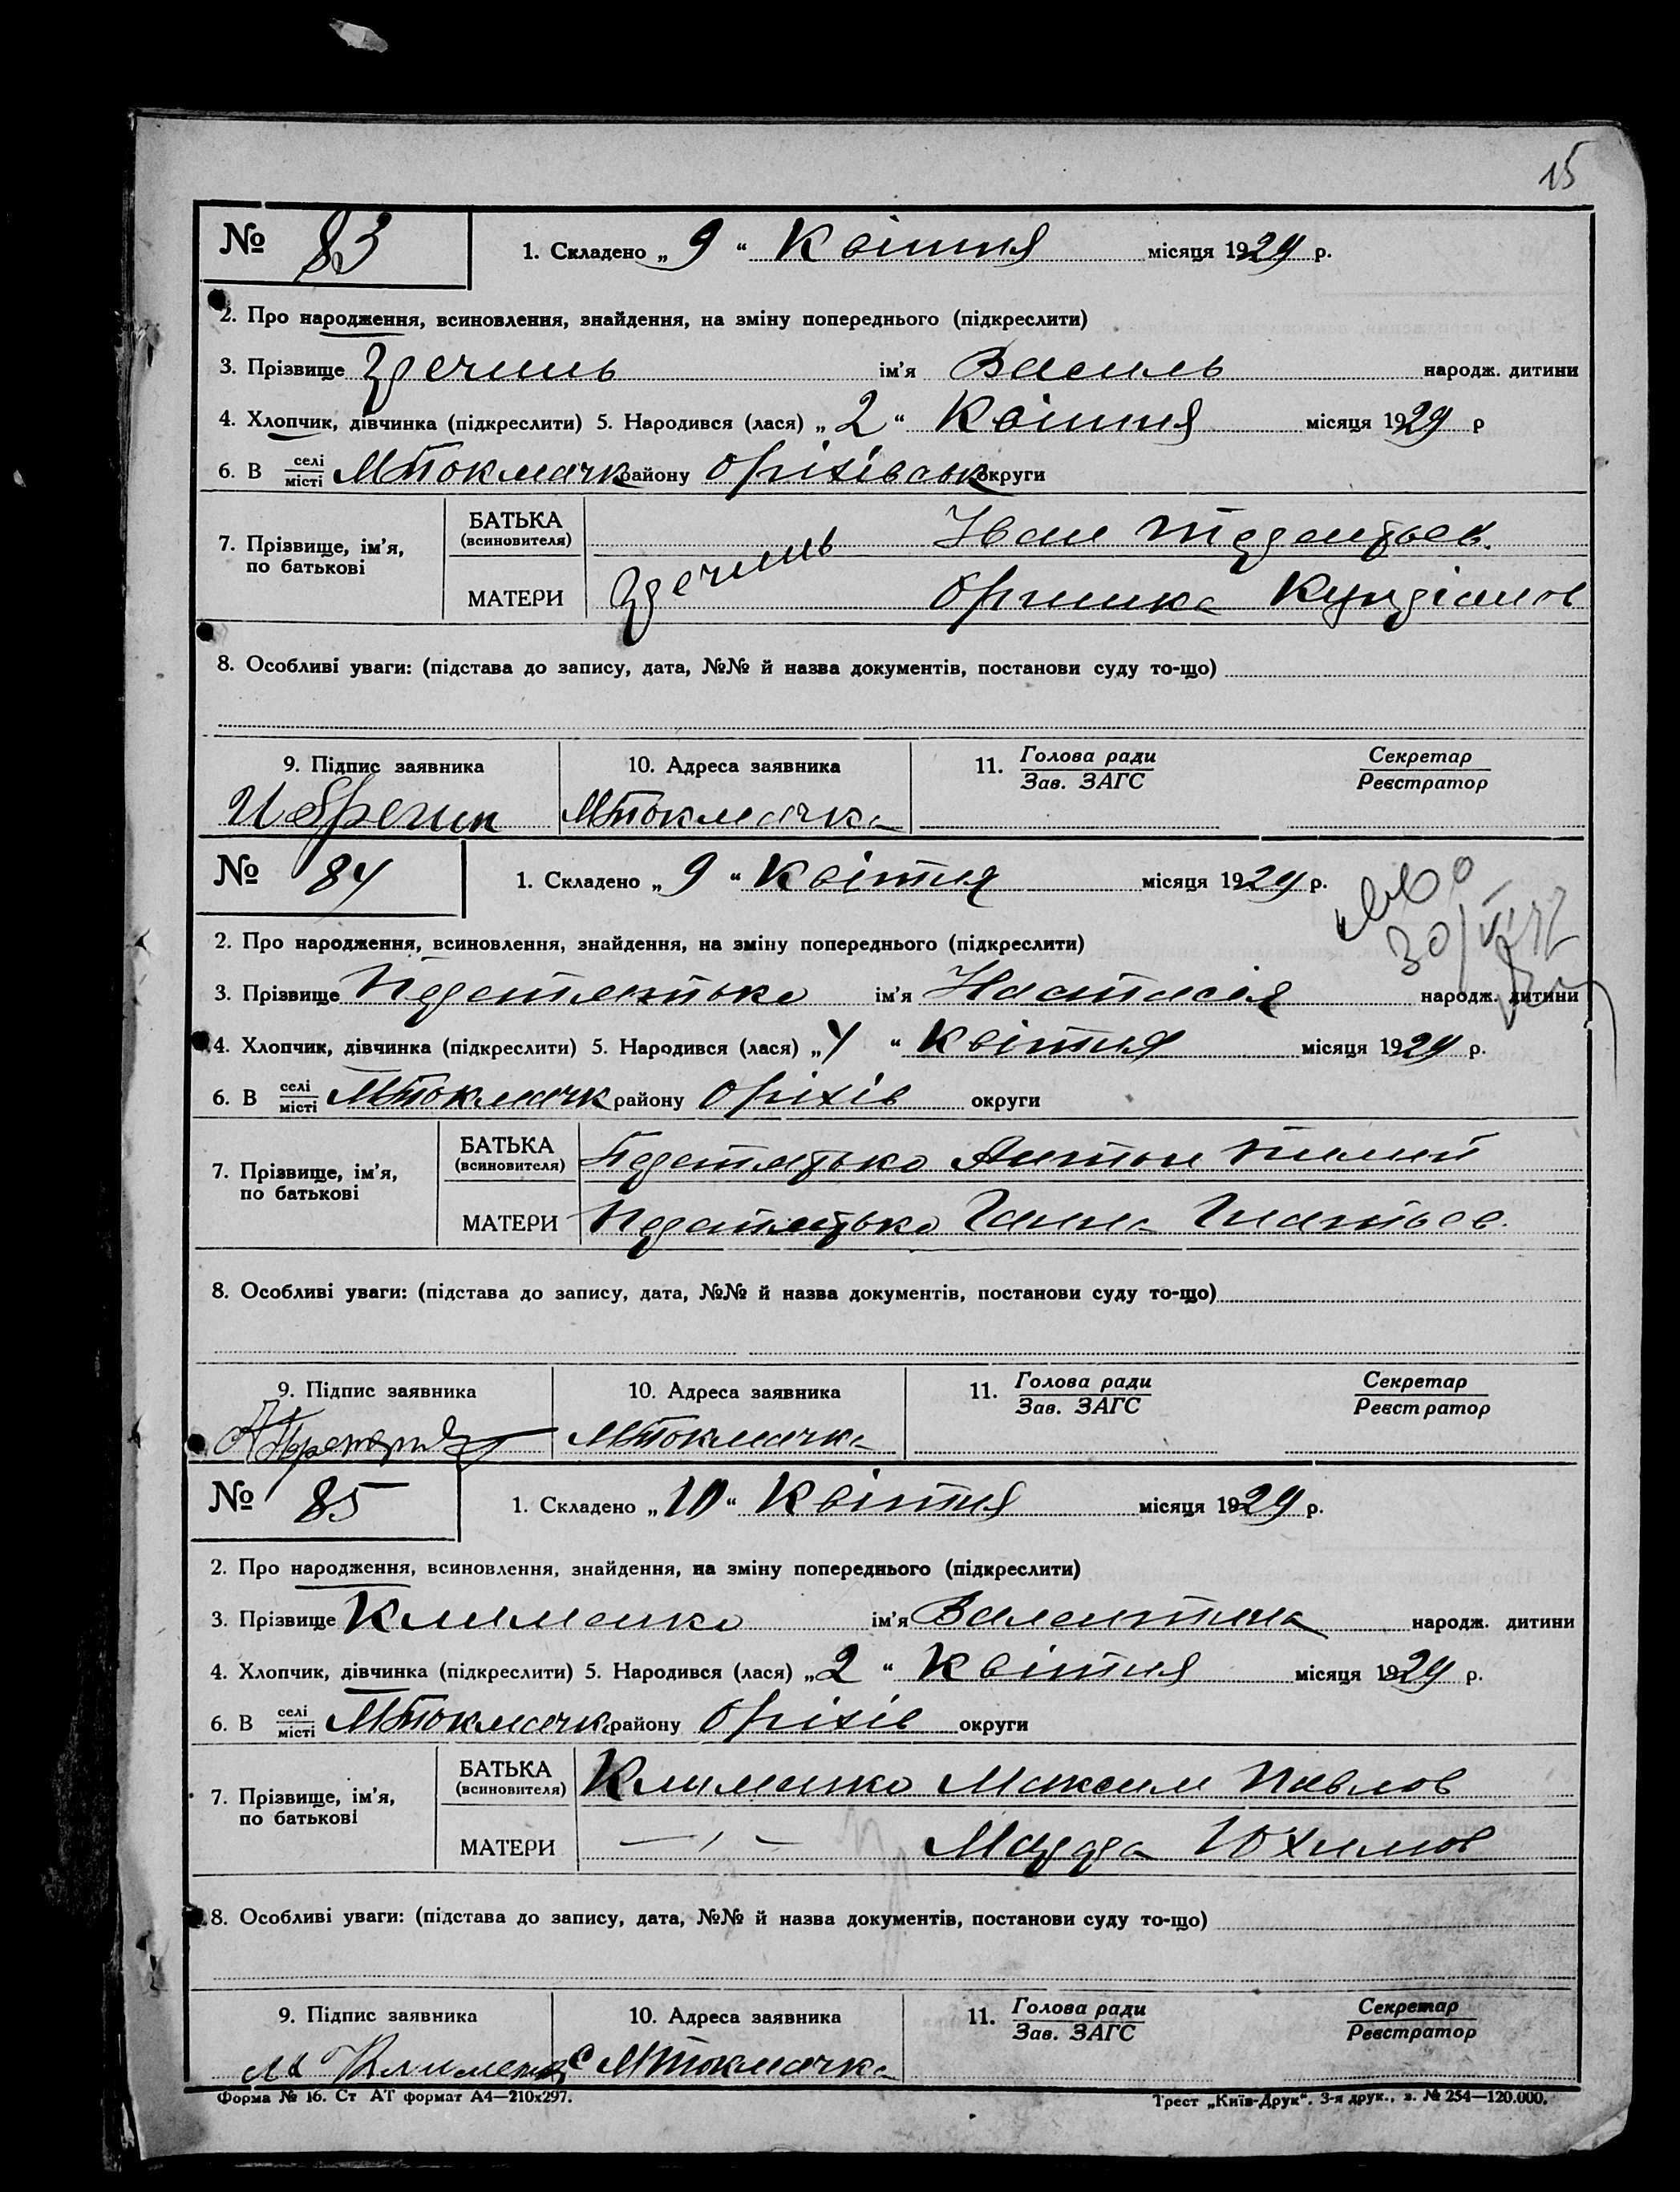 15
№ 83 1. Складено „9“ Квітня місяця 1929 р.
2. Про народження, всиновлення, знайдення, на зміну попереднього (підкреслити)
3. Прізвище ім'я Василь народж. дитини
4. Хлопчик, дівчинка (підкреслити) 5. Народився (лася) „2“ Квітня місяця 1929 р
6. В селі/місті МТокмачк району Оріхівськ округи
7. Прізвище, ім'я, по батькові
БАТЬКА (всиновителя) Іван
МАТЕРИ
8. Особливі уваги: (підстава до запису, дата, №№ й назва документів, постанови суду то-що)
9. Підпис заявника 10. Адреса заявника 11. Голова ради/Зав. ЗАГС Секретар/Реєстратор
МТокмачка
№ 84 1. Складено „9“ Квітня місяця 1929 р.
2. Про народження, всиновлення, знайдення, на зміну попереднього (підкреслити)
3. Прізвище ім'я Настасія народж. дитини
4. Хлопчик, дівчинка (підкреслити) 5. Народився (лася) „4“ Квітня місяця 1929 р.
6. В селі/місті МТокмачк району Оріхів округи
7. Прізвище, ім'я, по батькові
БАТЬКА (всиновителя) Антон
МАТЕРИ Ганна
8. Особливі уваги: (підстава до запису, дата, №№ й назва документів, постанови суду то-що)
9. Підпис заявника 10. Адреса заявника 11. Голова ради/Зав. ЗАГС Секретар/Реєстратор
МТокмачка
№ 85 1. Складено „10“ Квітня місяця 1929 р.
2. Про народження, всиновлення, знайдення, на зміну попереднього (підкреслити)
3. Прізвище Клименко ім'я Валентина народж. дитини
4. Хлопчик, дівчинка (підкреслити) 5. Народився (лася) „2“ Квітня місяця 1929 р.
6. В селі/місті МТокмачк району Оріхів округи
7. Прізвище, ім'я, по батькові
БАТЬКА (всиновителя) Клименко Максим Павлов
МАТЕРИ —〃— Юхимов
8. Особливі уваги: (підстава до запису, дата, №№ й назва документів, постанови суду то-що)
9. Підпис заявника 10. Адреса заявника 11. Голова ради/Зав. ЗАГС Секретар/Реєстратор
с МТокмачка
Форма № 16. Ст АТ формат А4—210х297. Трест „Київ-Друк“. 3-я друк., з. № 254—120.000.